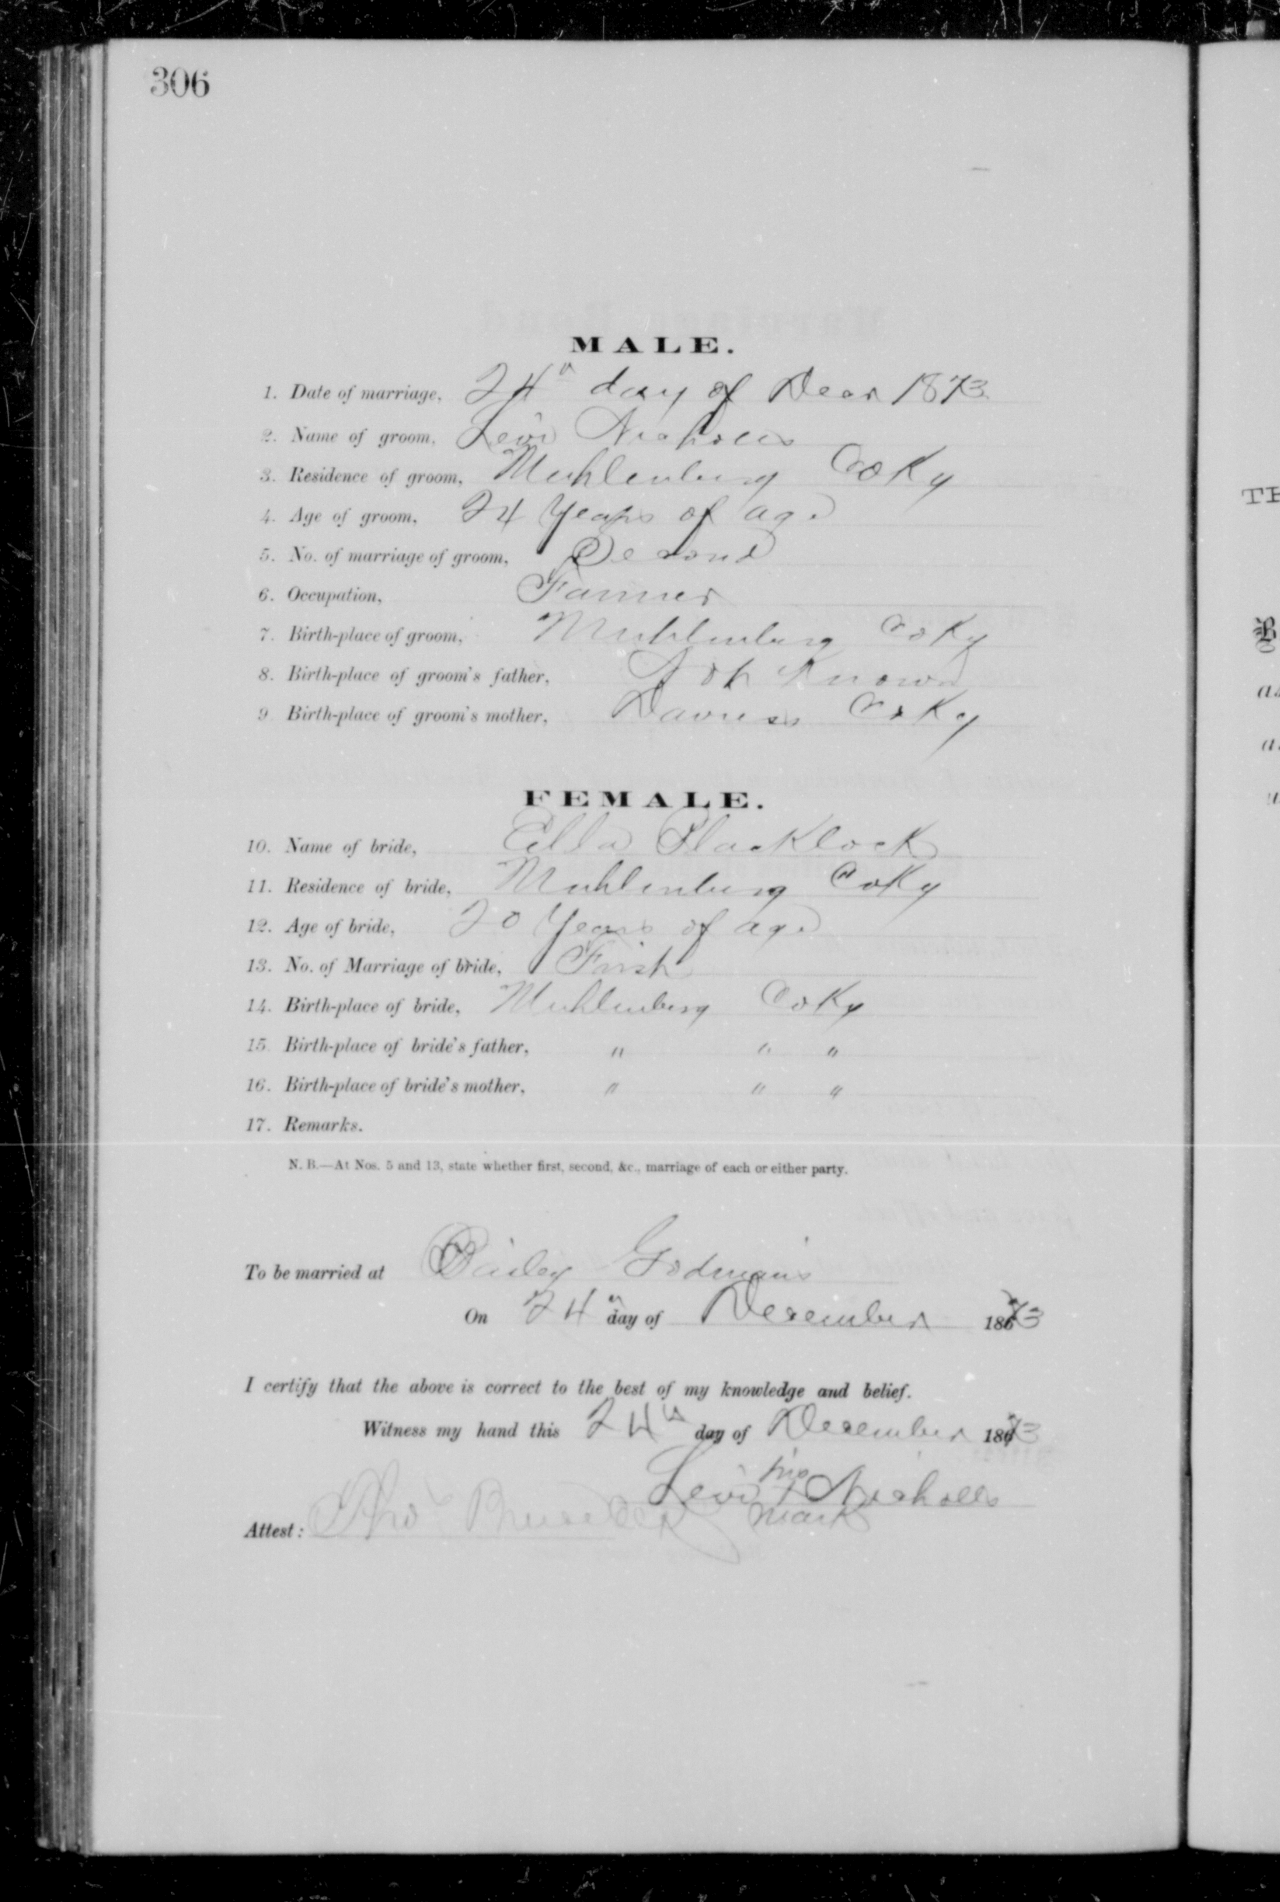 306
MALE.
1. Date of marriage, 24th day of Decr 1873
2. Name of groom, Levi Nicholls
3. Residence of groom, Muhlenburg Co Ky
4. Age of groom, 24 Years of age
5. No. of marriage of groom, Second
6. Occupation, Farmer
7. Birth-place of groom, Muhlenburg Co Ky
8. Birth-place of groom's father, Not Known
9. Birth-place of groom's mother, Daviess Co Ky
FEMALE.
10. Name of bride, Ella Blacklock
11. Residence of bride, Muhlenburg Co Ky
12. Age of bride, 20 Years of age
13. No. of Marriage of bride, First
14. Birth-place of bride, Muhlenburg Co Ky
15. Birth-place of bride's father, " " "
16. Birth-place of bride's mother, " " "
17. Remarks.
N. B.—At Nos. 5 and 13, state whether first, second, &c., marriage of each or either party.
To be married at Godman's
On 24th day of December 1873
I certify that the above is correct to the best of my knowledge and belief.
Witness my hand this 24th day of December 1873
his
Levi x Nicholls
mark
Attest: Thos
TH
B
as